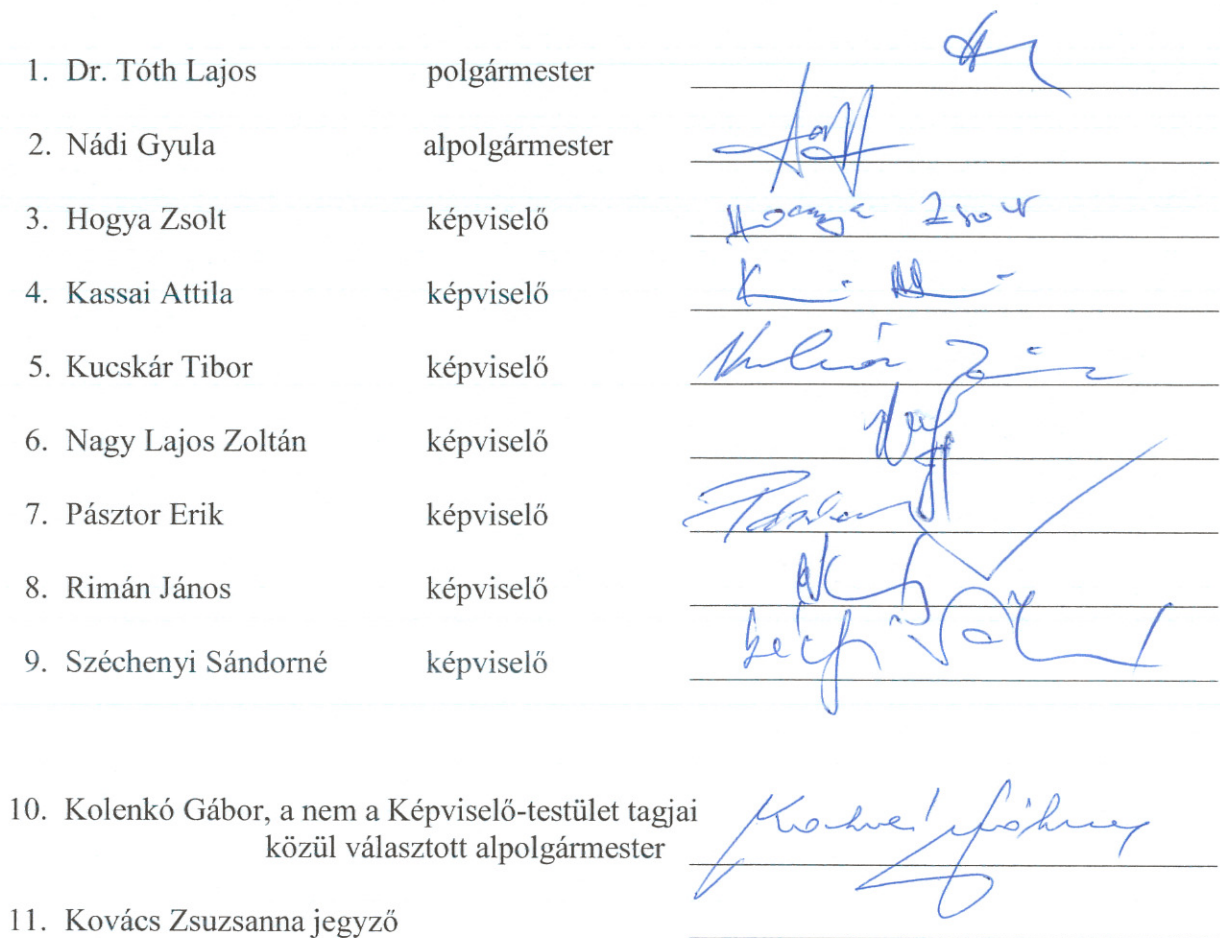 1. Dr. Tóth Lajos polgármester
2. Nádi Gyula alpolgármester
3. Hogya Zsolt képviselő Hogya Zsolt
4. Kassai Attila képviselő
5. Kucskár Tibor képviselő
6. Nagy Lajos Zoltán képviselő
7. Pásztor Erik képviselő
8. Rimán János képviselő
9. Széchenyi Sándorné képviselő
10. Kolenkó Gábor, a nem a Képviselő-testület tagjai
közül választott alpolgármester
11. Kovács Zsuzsanna jegyző